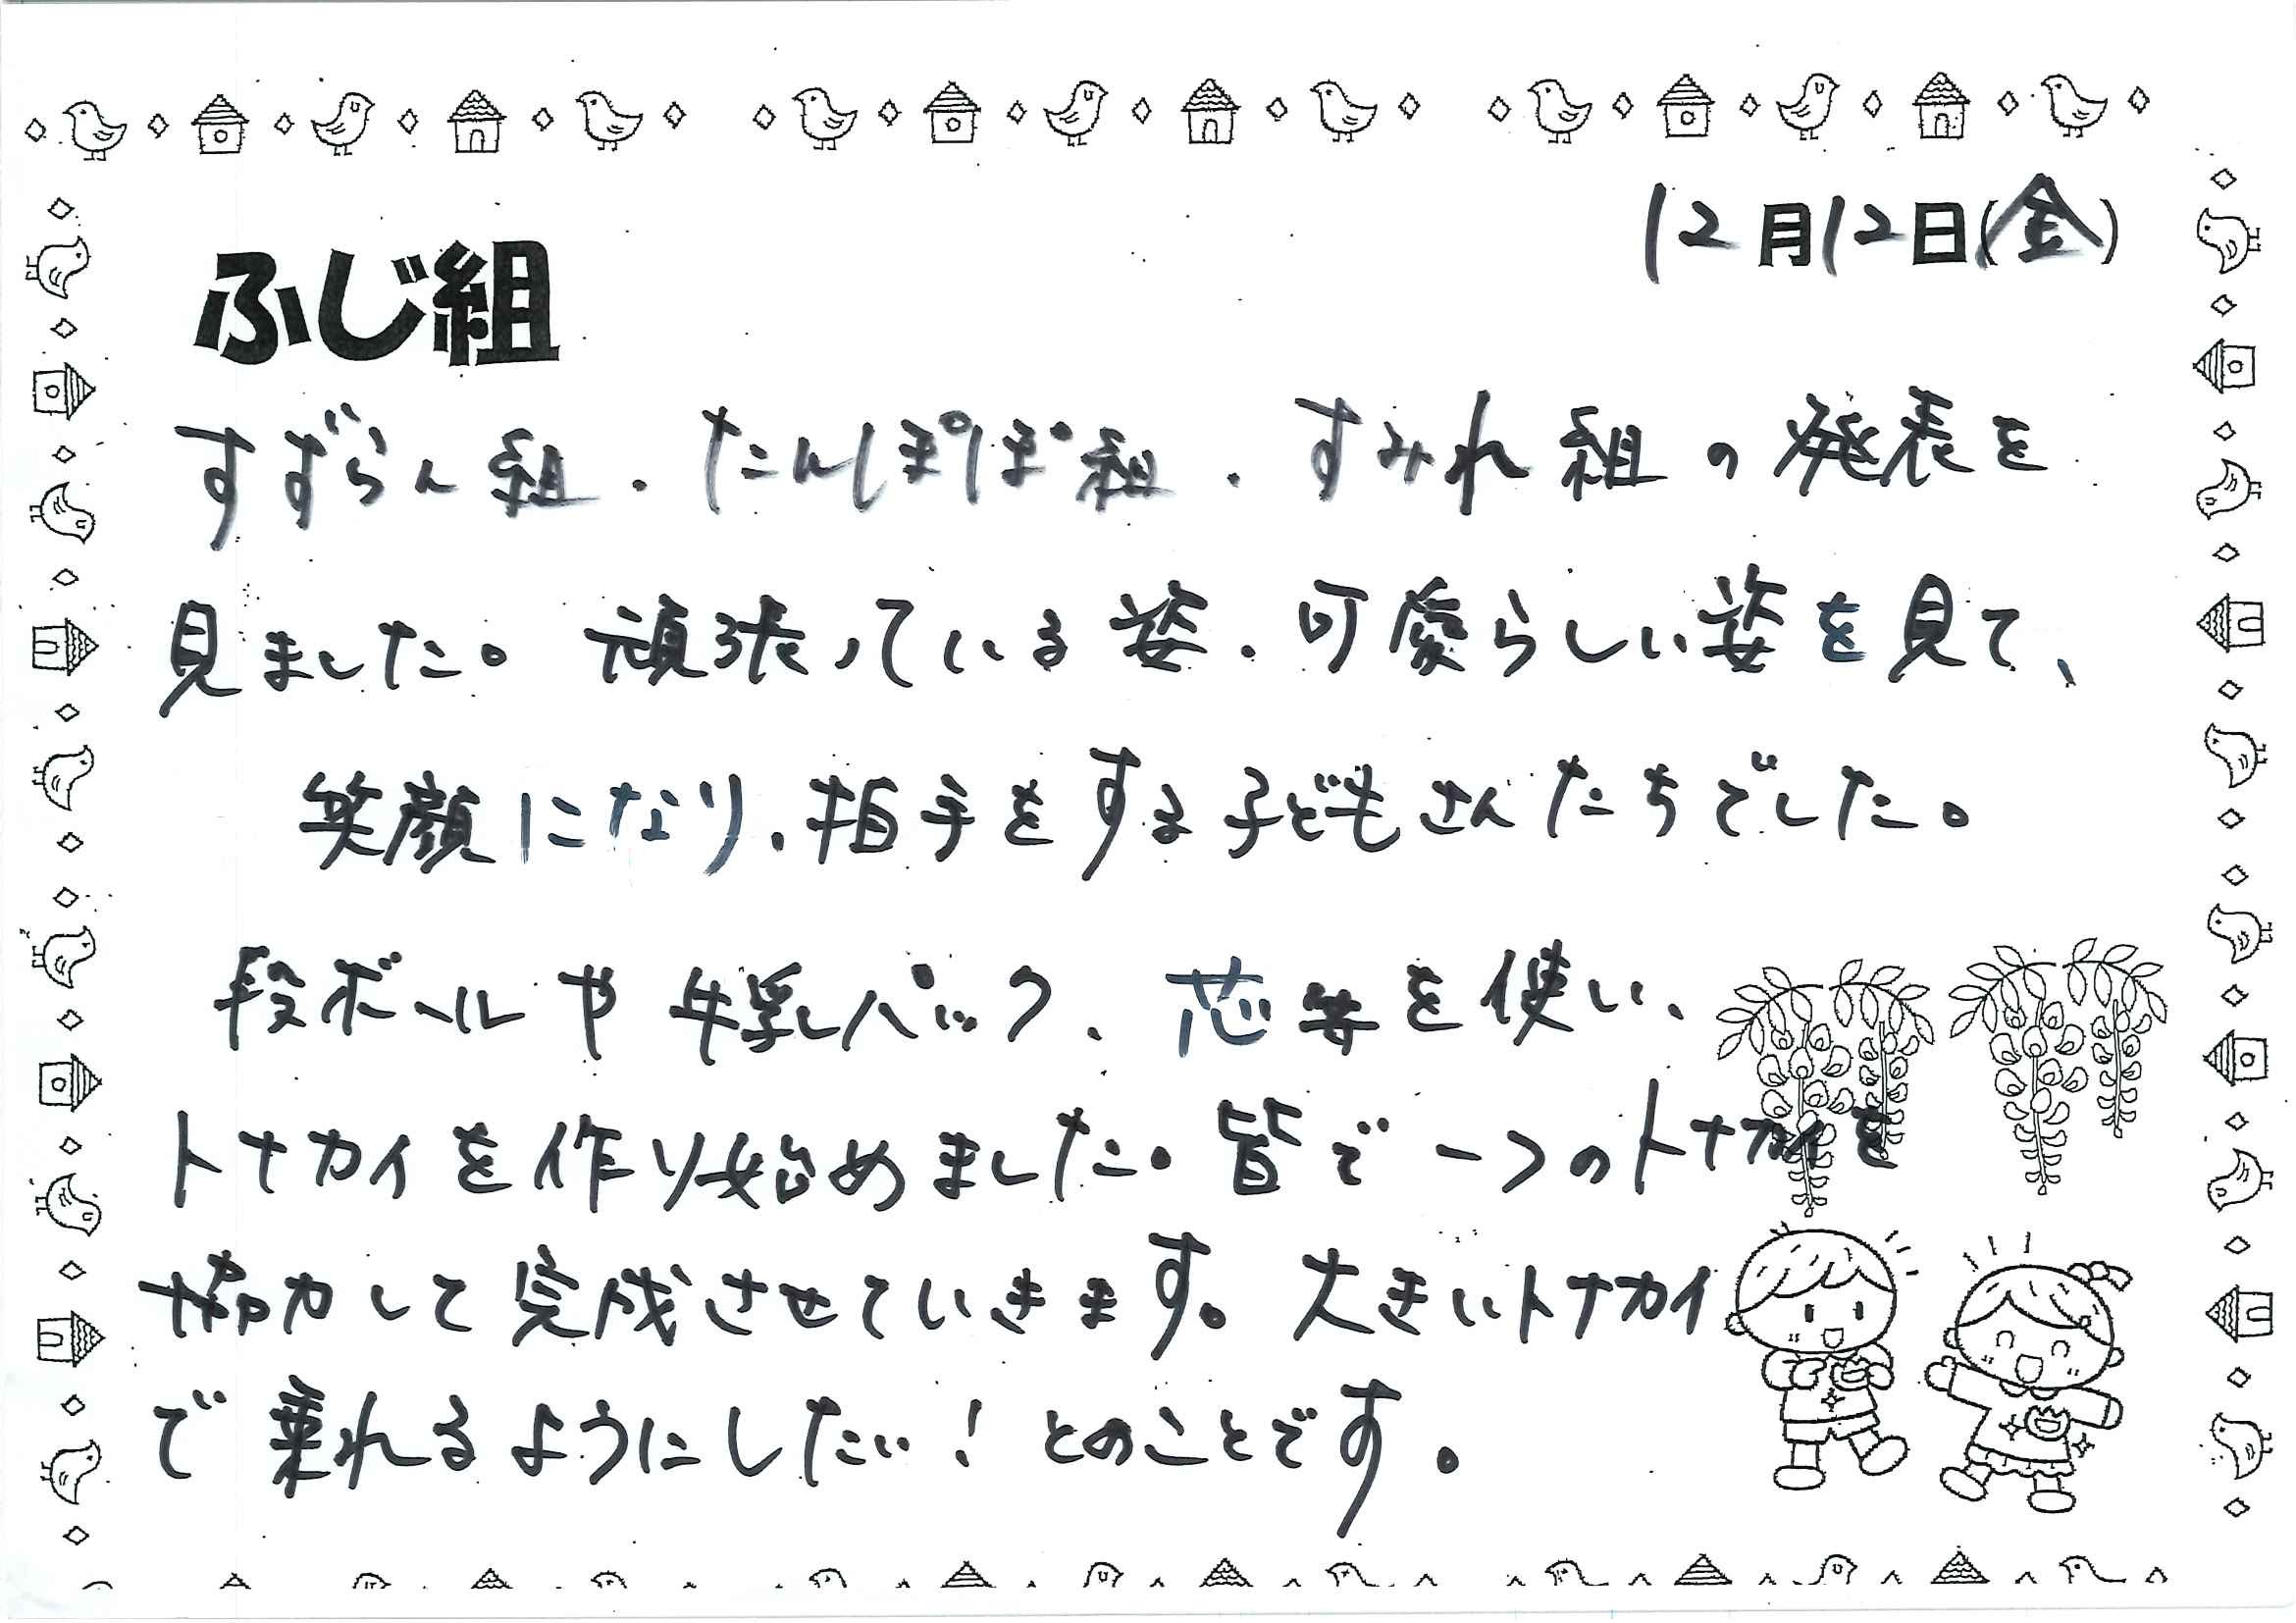 12月12日(金)
ふじ組
すずらん組、たんぽぽ組、すみれ組の発表を
見ました。頑張っている姿、可愛らしい姿を見て、
笑顔になり、拍手をする子どもさんたちでした。
段ボールや牛乳パック、芯等を使い、
トナカイを作り始めました。皆で一つのトナカイを
協力して完成させていきます。大きいトナカイ
で乗れるようにしたい！とのことです。